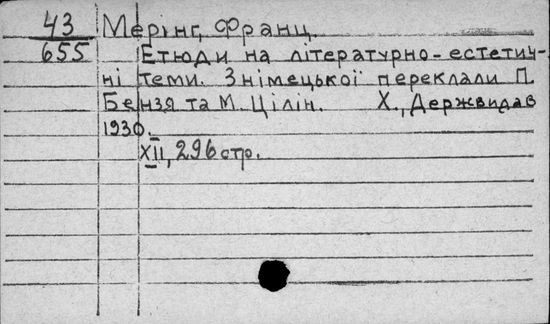 43 Мерінг, Франц.
655 Етюди на літературно-естетич-
ні теми. З німецької переклали П.
Бензя та М. Цілін. Х., Держвидав
1930.
XII, 296 стр.